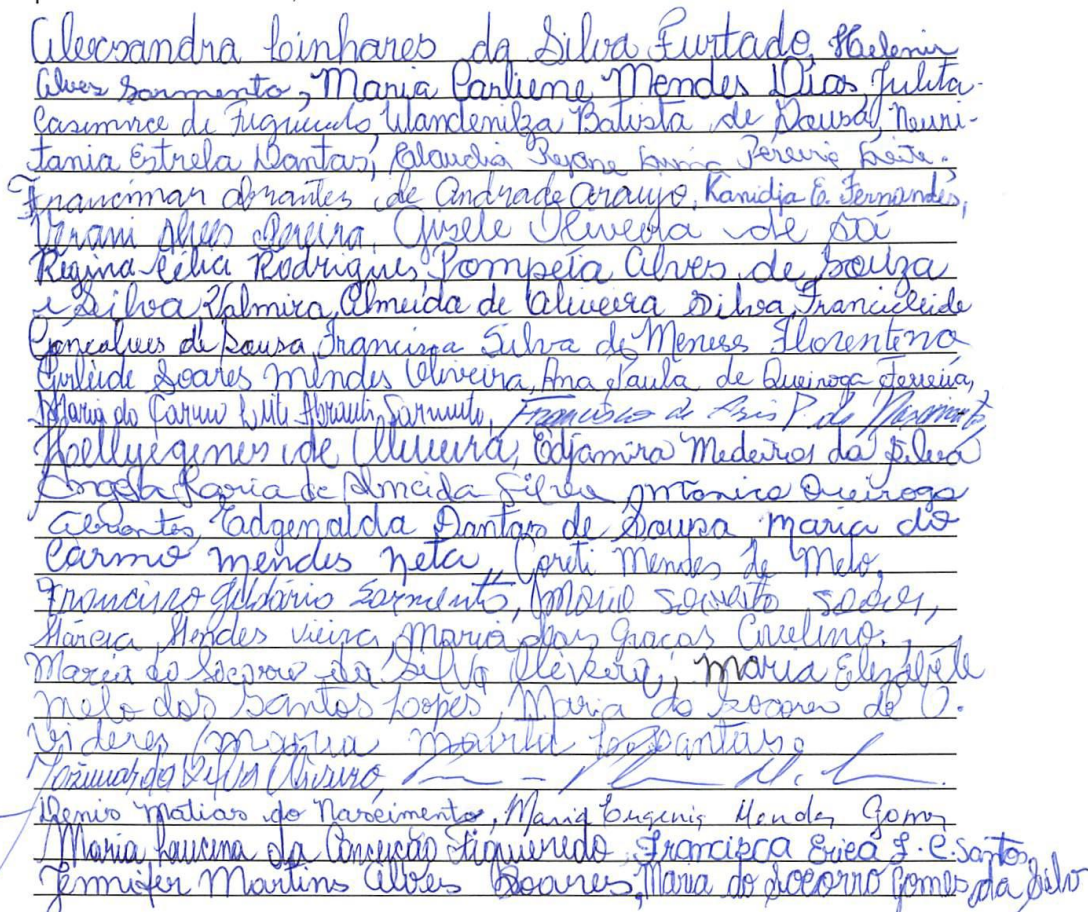 Alecsandra Linhares da Silva Furtado, Helenir
Alves Sarmento, Maria Carliene Mendes Dias, Julita
Casimirce de Figueiredo, Wandenilza Batista de Sousa, Neuri-
tania Estrela Dantas, Claudia Rejane Pereira Leite.
Francimar Abrantes de Andrade Araujo, Kanidja E. Fernandes,
Verani Alves Pereira, Gisele Oliveira de Sá
Regina Célia Rodrigues Pompeia Alves de Souza
e Silva Valmira Almeida de Oliveira Silva, Francicleide
Gonçalves de Sousa, Francisca Silva de Meneses Florentino
Girleide Soares Mendes Oliveira, Ana Paula de Queiroga Ferreira,
Maria do Carmo Leite Abrantes Sarmento, Francisco de Assis P. do Nascimento,
Hellyegenes de Oliveira, Edjamira Medeiros da Silva
Angela Maria de Almeida Silva, Monica Queiroga
Abrantes, Edgenalda Dantas de Sousa Maria do
Carmo Mendes Neta, Goreti Mendes de Melo,
Francisco Sarmento, Maria Socorro Soares,
Márcia Mendes Vieira, Maria das Graças Avelino.
Maria do Socorro da Silva Oliveira, Maria Elizabete
Melo dos Santos Lopes, Maria do Socorro de O.
Videres, Maria Marta Dantas,
Josimar da Silva Oliveira,
Denis Matias do Nascimento, Maria Eugenia Mendes Gomes
Maria Laucena da Conceição Figueiredo, Francisca Erica F. C. Santos,
Jennifer Martins Alves Soares, Maria do Socorro Gomes da Silva